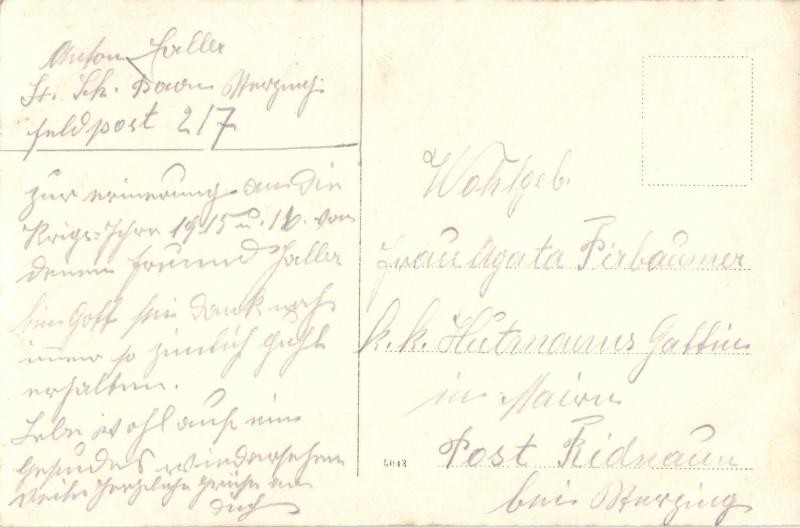 Anton Haller
St. Sch. Baon Sterzing
Feldpost 217
zur erinerung an die
Krigs=Jahre 1915 u. 16 von
deinen freund Haller
bin Gott sei dank noch
immer so zimlich guht
erhalten.
Lebe wohl auf ein
gesundes widersehen
Viele herzliche grüße an
dich
Wohlgeb.
Frau Agata Pirbaumer
k. k. Hutmanns Gattin
in Mairn
Post Ridnaun
bei Sterzing
5048